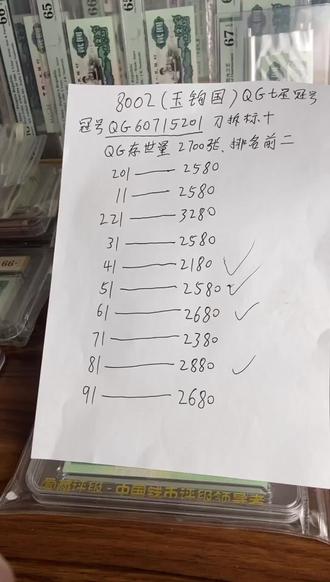 65
65
67
66
8002(玉钩国)QG七星冠号
冠号QG60715201 刀拆标十
QG存世量2700张、排名前二
201——2580
11——2580
221——3280
31——2580
41——2180 ✓
51——2580 ✓
61——2680 ✓
71——2380
81——2880 ✓
91——2680
评级·中国钱币评级领导者